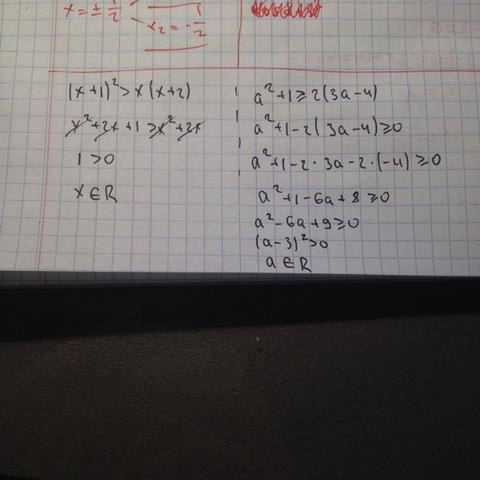 x = ± 1/2
x₂ = -1/2
(x+1)² > x(x+2)
x²+2x+1 ≥ x²+2x
1 > 0
x ∈ R
a²+1 ≥ 2(3a-4)
a²+1-2(3a-4) ≥ 0
a²+1-2·3a-2·(-4) ≥ 0
a²+1-6a+8 ≥ 0
a²-6a+9 ≥ 0
(a-3)² > 0
a ∈ R